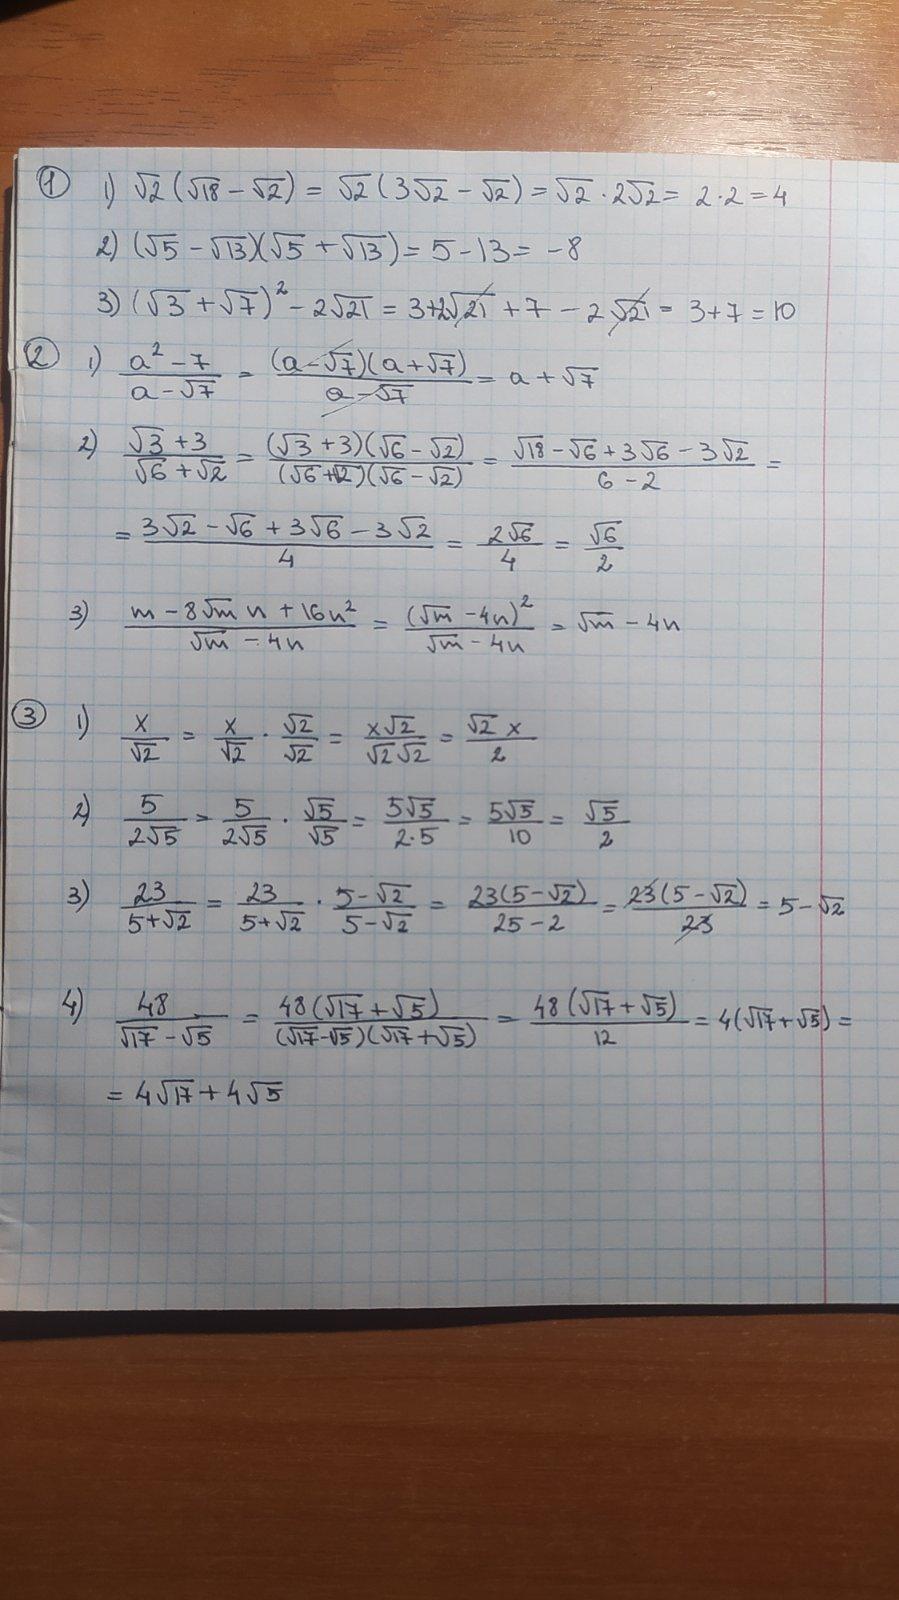 ① 1) √2 (√18 − √2) = √2 (3√2 − √2) = √2 · 2√2 = 2 · 2 = 4
2) (√5 − √13)(√5 + √13) = 5 − 13 = −8
3) (√3 + √7)² − 2√21 = 3+2√21 + 7 − 2√21 = 3 + 7 = 10
② 1) (a² − 7)/(a − √7) = ((a − √7)(a + √7))/(a − √7) = a + √7
2) (√3 + 3)/(√6 + √2) = ((√3 + 3)(√6 − √2))/((√6 + √2)(√6 − √2)) = (√18 − √6 + 3√6 − 3√2)/(6 − 2) =
= (3√2 − √6 + 3√6 − 3√2)/4 = 2√6/4 = √6/2
3) (m − 8√m n + 16n²)/(√m − 4n) = (√m − 4n)²/(√m − 4n) = √m − 4n
③ 1) x/√2 = x/√2 · √2/√2 = x√2/(√2 √2) = √2 x/2
2) 5/(2√5) = 5/(2√5) · √5/√5 = 5√5/(2·5) = 5√5/10 = √5/2
3) 23/(5+√2) = 23/(5+√2) · (5−√2)/(5−√2) = 23(5−√2)/(25−2) = 23(5−√2)/23 = 5−√2
4) 48/(√17 − √5) = 48(√17 + √5)/((√17−√5)(√17+√5)) = 48(√17+√5)/12 = 4(√17+√5) =
= 4√17 + 4√5